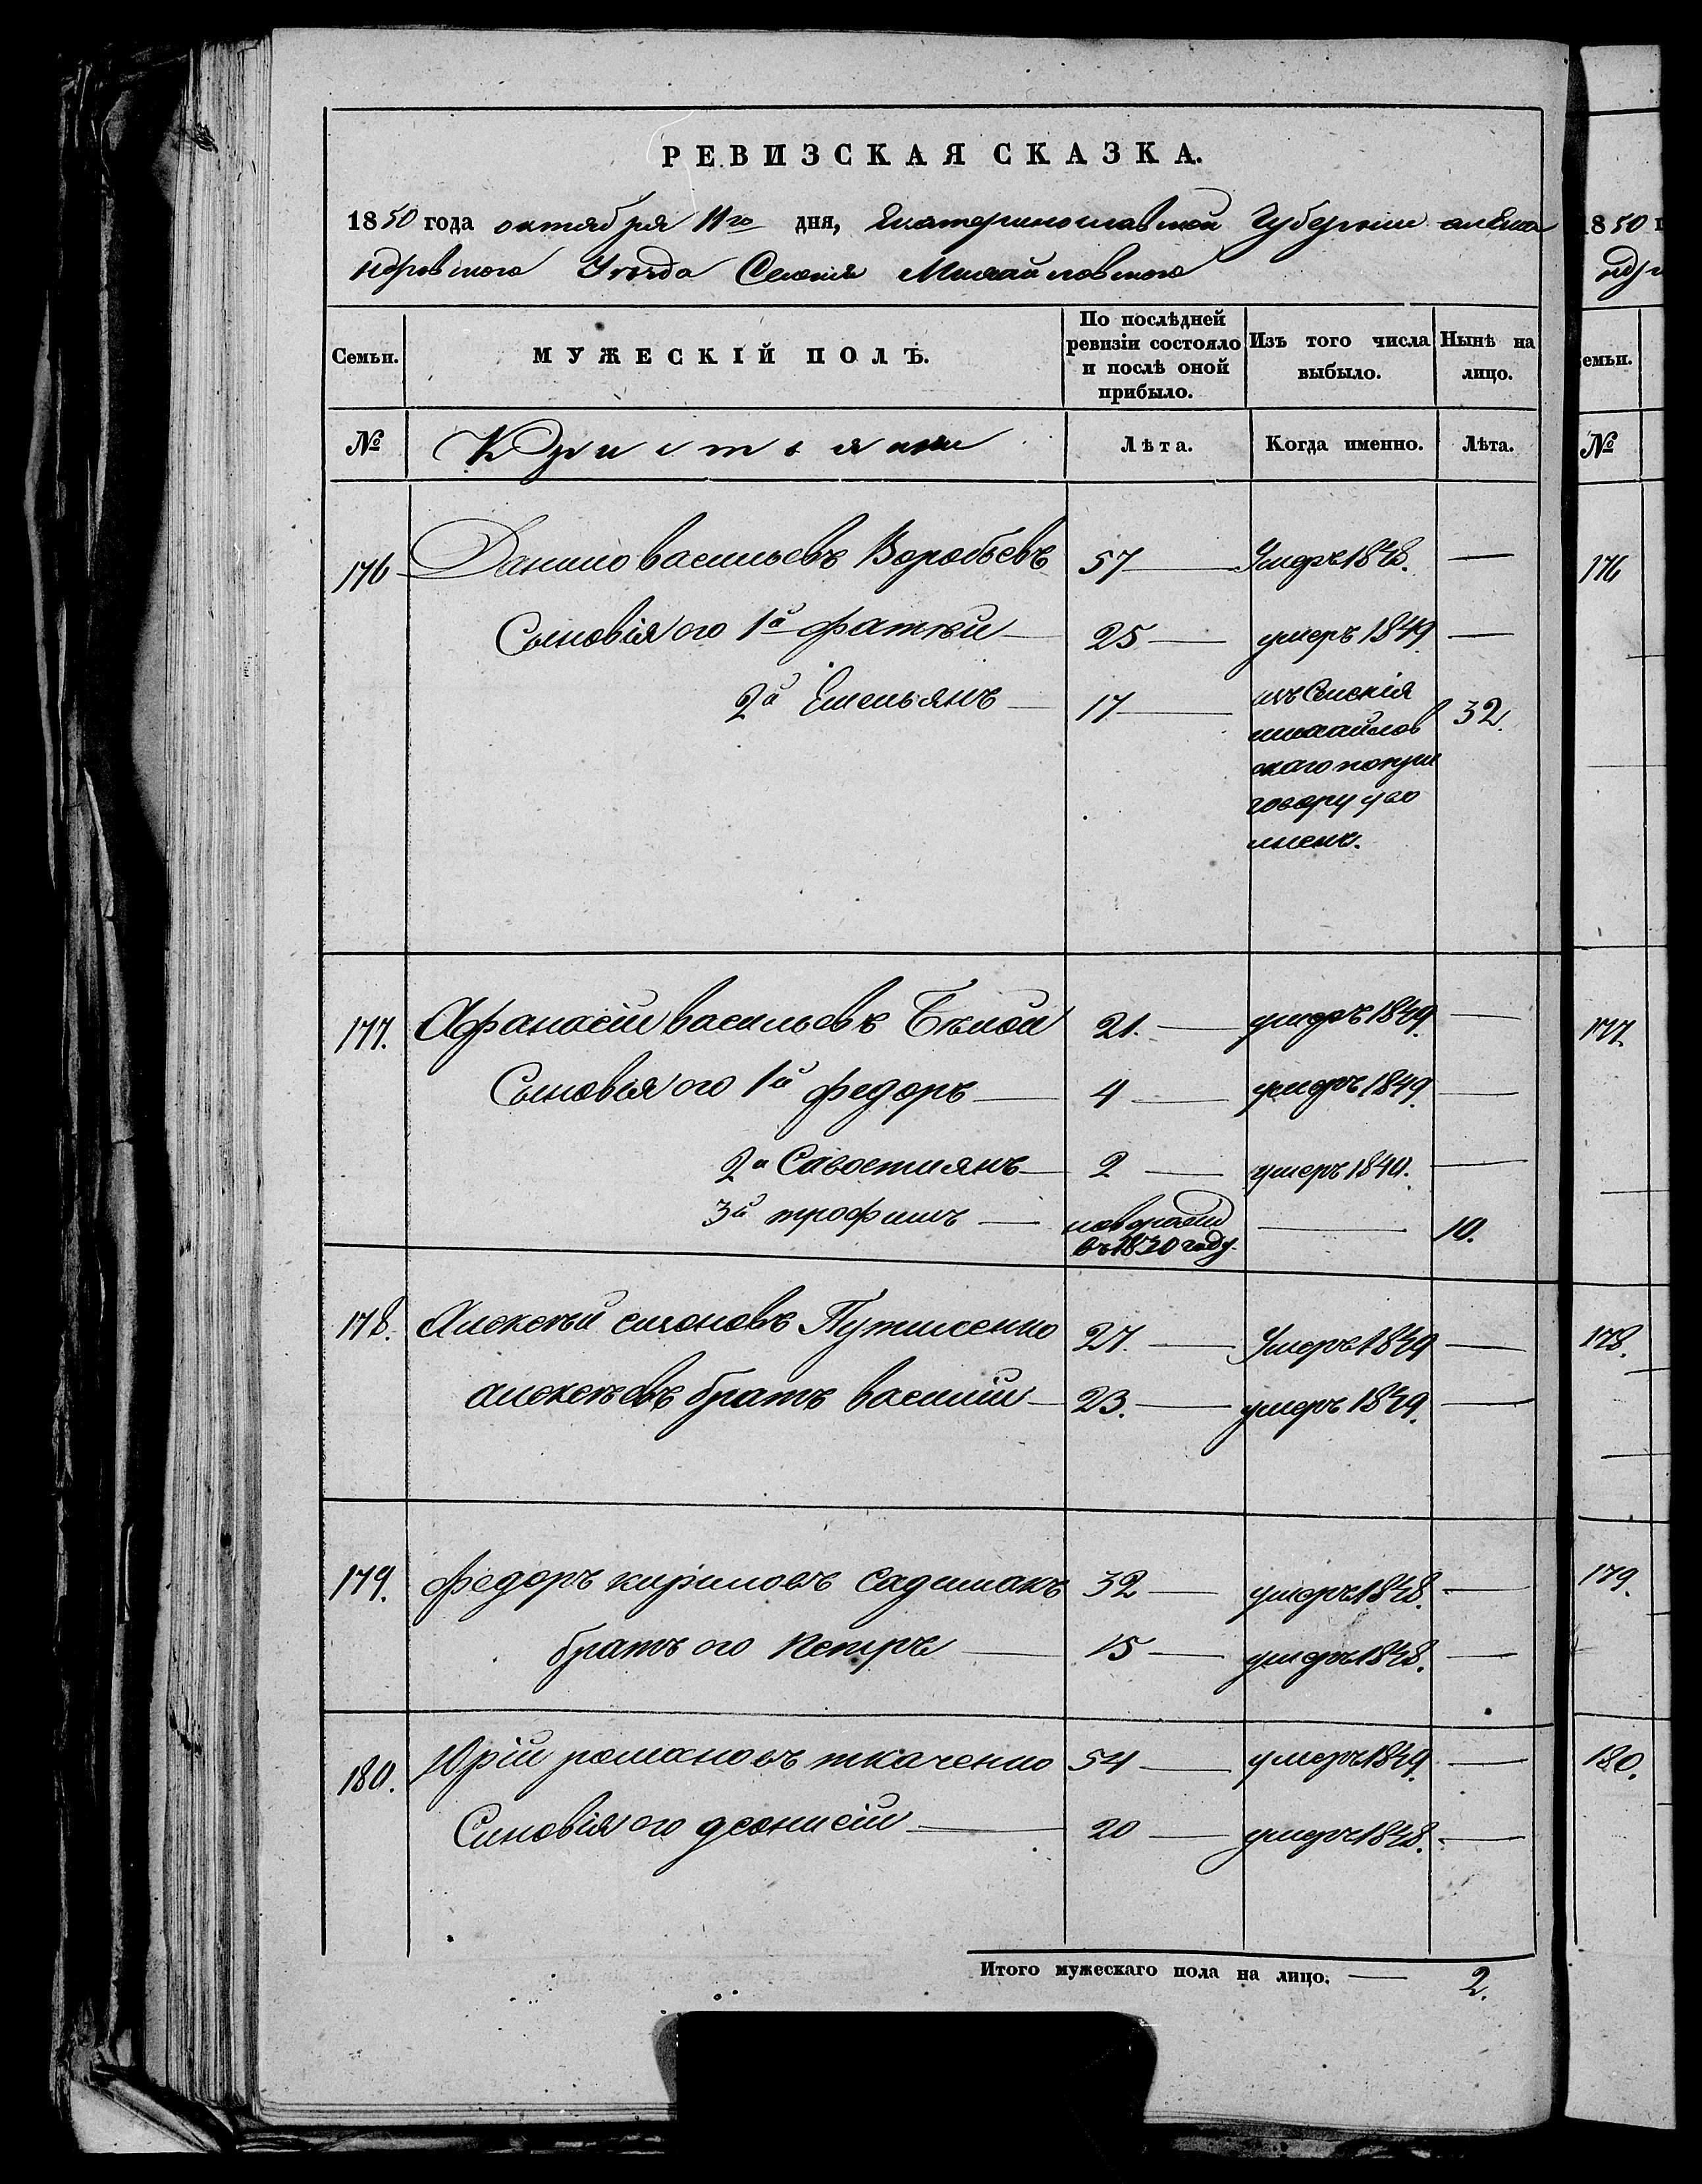 РЕВИЗСКАЯ СКАЗКА.
1850 года октября 11го дня, Екатеринославской Губернии алекса
ндровского Уезда Селения Михайловского
Семьи.
МУЖЕСКІЙ ПОЛЪ.
По послѣдней ревизіи состояло и послѣ оной прибыло.
Изъ того числа выбыло.
Нынѣ на лицо.
№ Кристьяни Лѣта. Когда именно. Лѣта.
176 Данило васильевъ Воробьевъ 57 Умеръ 1848. —
Сыновія его 1й фатѣй 25 умеръ 1849 —
2й Емельянъ 17 изъ Селенія михайловскаго 32.
177. Афанасій васильевъ Бѣлой 21. умеръ 1849. —
Сыновія его 1й федоръ 4 умеръ 1849. —
2й Савостиянъ 2 умеръ 1840. —
3й трофимъ — 10.
178. Алексѣй Путиленко 27. Умеръ 1849 —
алексѣевъ братъ василій 23. умеръ 1849. —
179. федоръ кириловъ 32 умеръ 1848. —
братъ его петръ 15 умеръ 1848. —
180. Юрій романовъ ткаченко 54 умеръ 1849. —
Синовія его деонисій 20 умеръ 1848. —
Итого мужескаго пола на лицо. — 2.
1850
емьи.
№
176
177.
178.
179.
180.